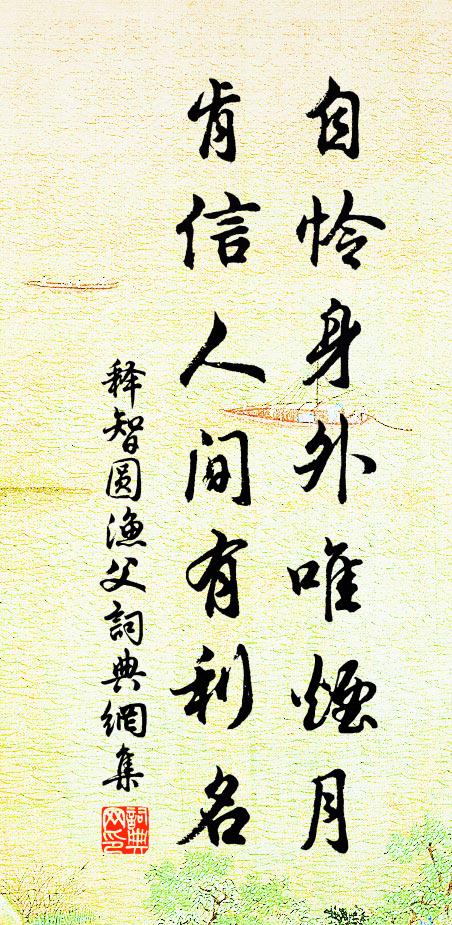 自怜身外唯煙月
肯信人间有利名
释智圆渔父詞典網集
詞典网印